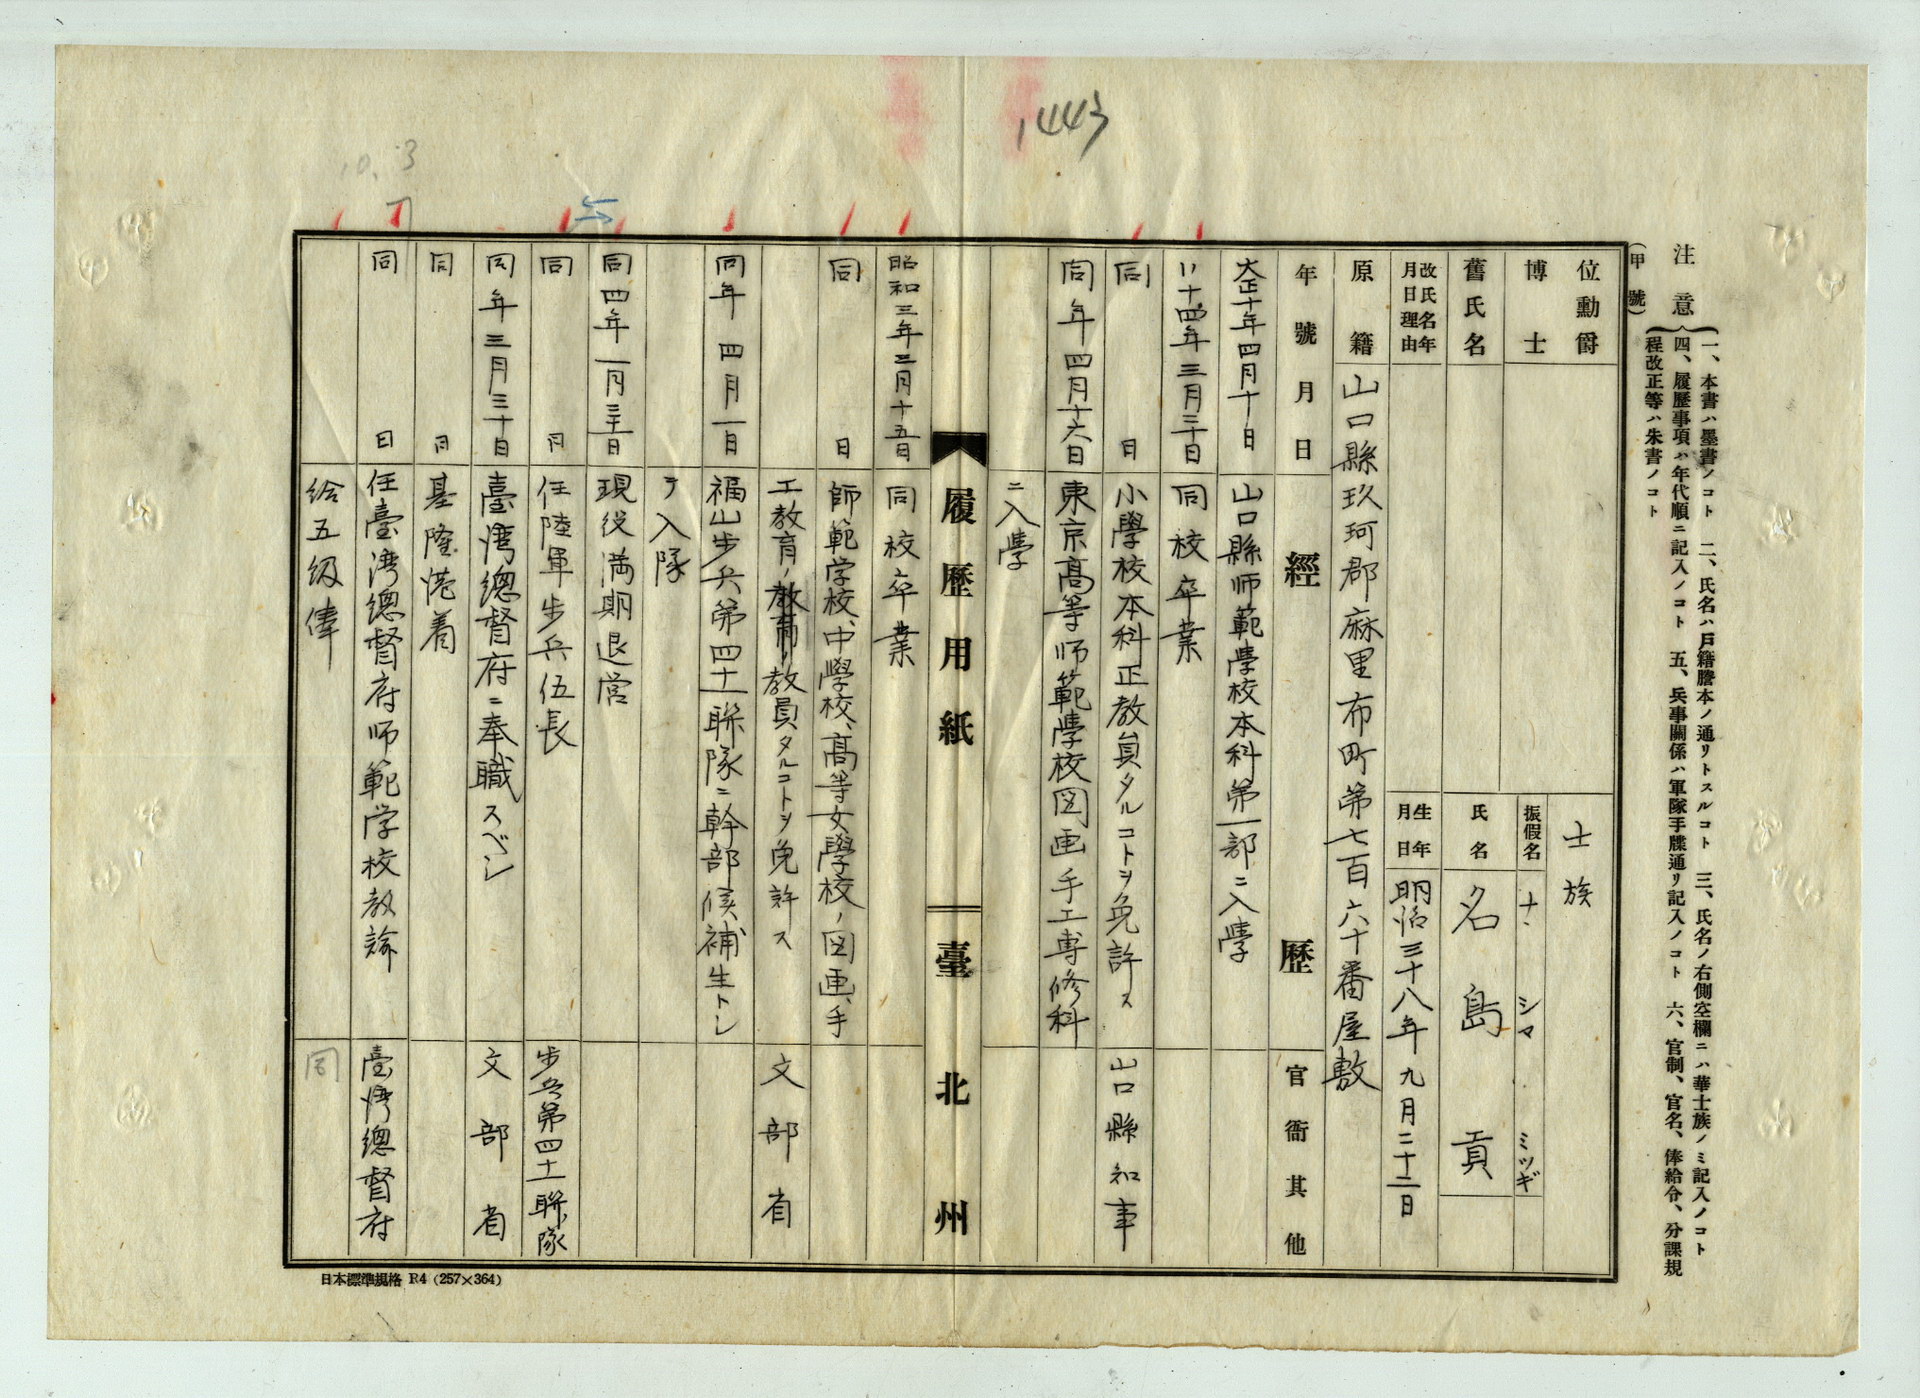 1443
10.3
注意
一、本書ハ墨書ノコト 二、氏名ハ戸籍謄本ノ通リトスルコト 三、氏名ノ右側空欄ニハ華士族ノミ記入ノコト
四、履歴事項ハ年代順ニ記入ノコト 五、兵事關係ハ軍隊手牒通リ記入ノコト 六、官制、官名、俸給令、分課規
程改正等ハ朱書ノコト
(甲號)
位勳爵
士族
博士
振假名 ナ シマ ミツギ
舊氏名
氏名 名島 貢
改氏名年月日理由
生年月日 明治三十八年九月二十二日
原籍 山口縣玖珂郡麻里布町第七百六十番屋敷
年號月日 經歷 官衙其他
大正十年四月十日 山口縣师範學校本科第一部ニ入學
〃十四年三月二十日 同校卒業
同 日 小學校本科正教員タルコトヲ免許ス 山口縣知事
同年四月十六日 東京高等师範學校図画手工専修科
ニ入學
履歷用紙 臺北州
昭和三年三月十五日 同校卒業
同 日 師範学校、中學校、高等女學校ノ図画、手
工教育ノ教育ノ教員タルコトヲ免許ス 文部省
同年四月一日 福山步兵第四十一聯隊ニ幹部候補生トシ
テ入隊
同四年一月三十一日 現役満期退営
同 日 任陸軍步兵伍長 步兵第四十一聯隊
同年三月三十日 臺湾總督府ニ奉職スベシ 文部省
同 月 基隆港着
同 日 任臺湾總督府师範学校教諭 臺湾總督府
給五級俸 同
日本標準規格 R4 (257×364)